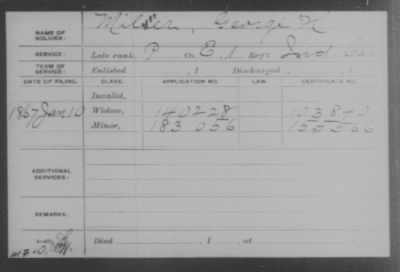 NAME OF SOLDIER: Milser, George K
SERVICE: Late rank, P Co. E, 1 Reg't Ind Cav
TERM OF SERVICE: Enlisted , 1 Discharged , 1
DATE OF FILING. CLASS. APPLICATION NO. LAW. CERTIFICATE NO.
Invalid,
1867 Jan 10 Widow, 140228 103840
Minor, 183056
ADDITIONAL SERVICES:
REMARKS:
Died , 1 , at